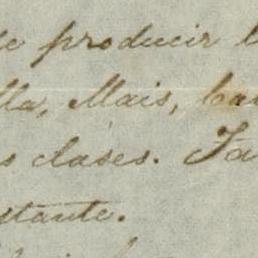 de producir
lla, Mais, ca
s clases. Ta
stante.